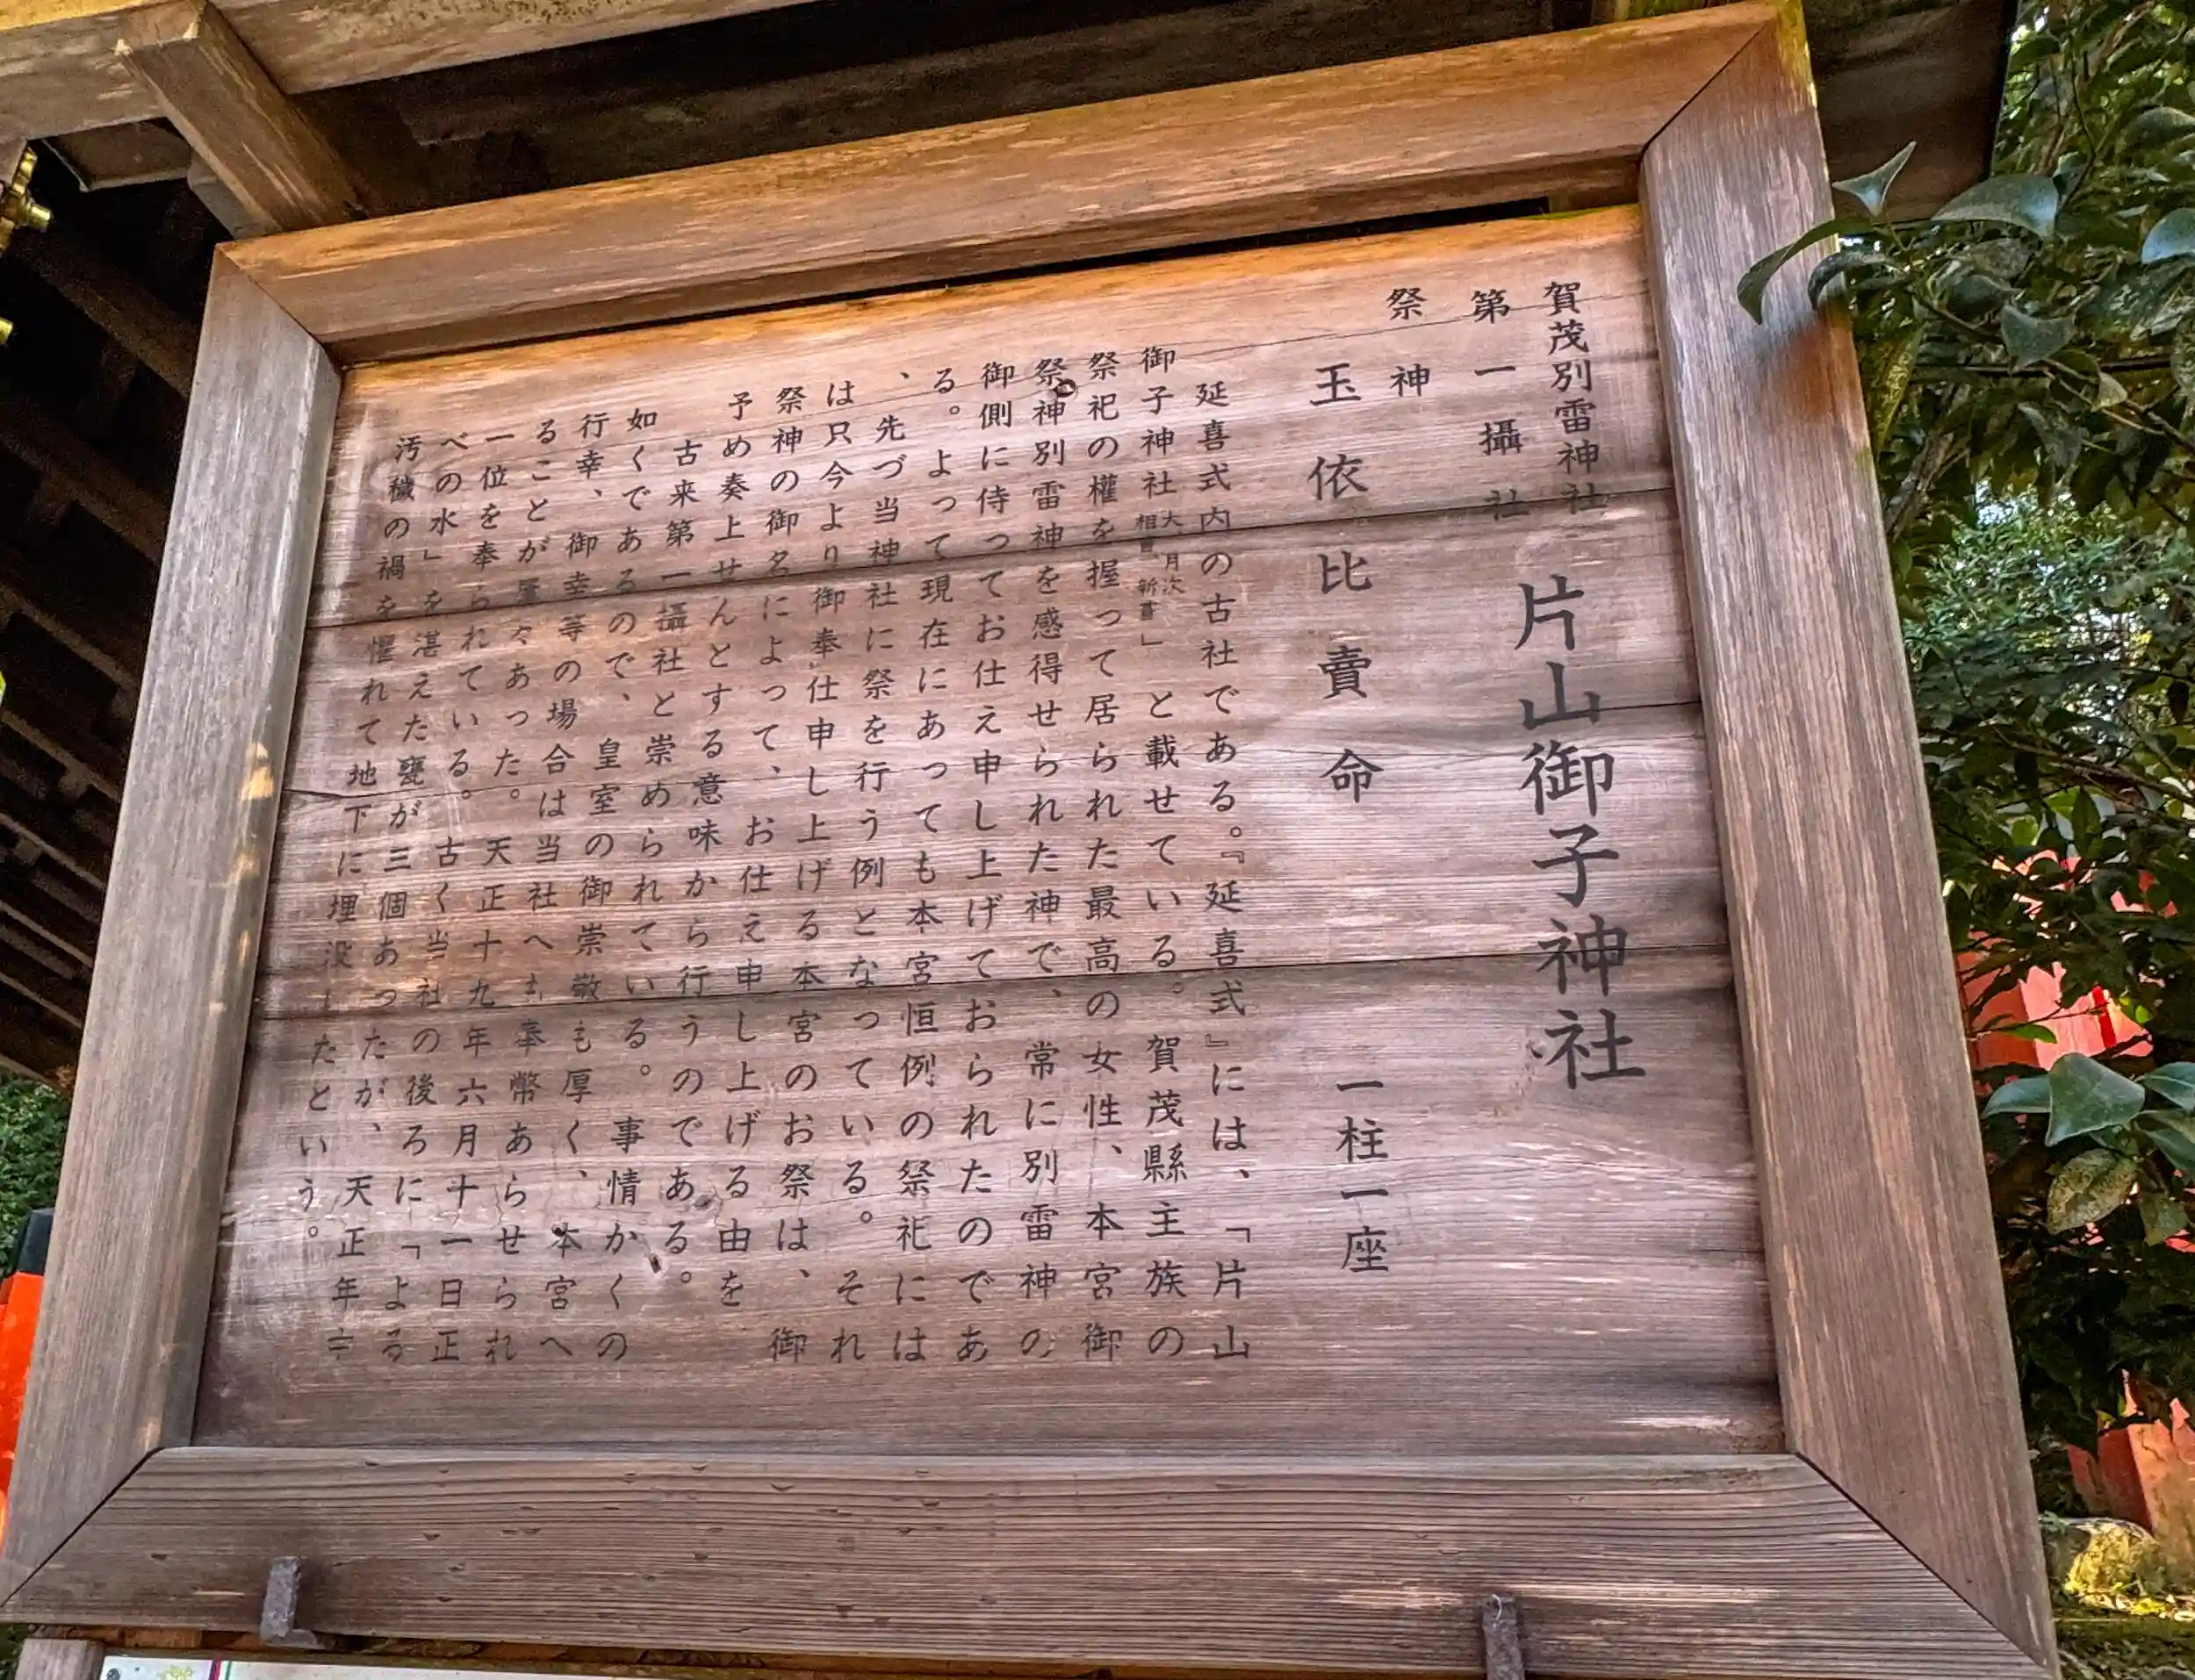 賀茂別雷神社
第一攝社
片山御子神社
祭神
玉依比賣命 一柱一座
延喜式内の古社である。『延喜式』には、「片山
御子神社 大、月次 相嘗 新嘗」と載せている。賀茂縣主族の
祭祀の權を握って居られた最高の女性、本宮御
祭神別雷神を感得せられた神で、常に別雷神の
御側に侍ってお仕え申し上げておられたのであ
る。よって現在にあっても本宮恒例の祭祀には
、先づ当神社に祭を行う例となっている。それ
は只今より御奉仕申し上げる本宮のお祭は、御
祭神の御名によって、お仕え申し上げる由を
予め奏上せんとする意味から行うのである。
古来第一攝社と崇められている。事情かくの
如くであるので、皇室の御崇敬も厚く、本宮へ
行幸、御幸等の場合は当社へも奉幣あらせられ
ることが屢々あった。天正十九年六月十一日正
一位を奉られている。古く当社の後ろに「よる
べの水」を湛えた甕が三個あったが、天正年
汚穢の禍を懼れて地下に埋没したという。